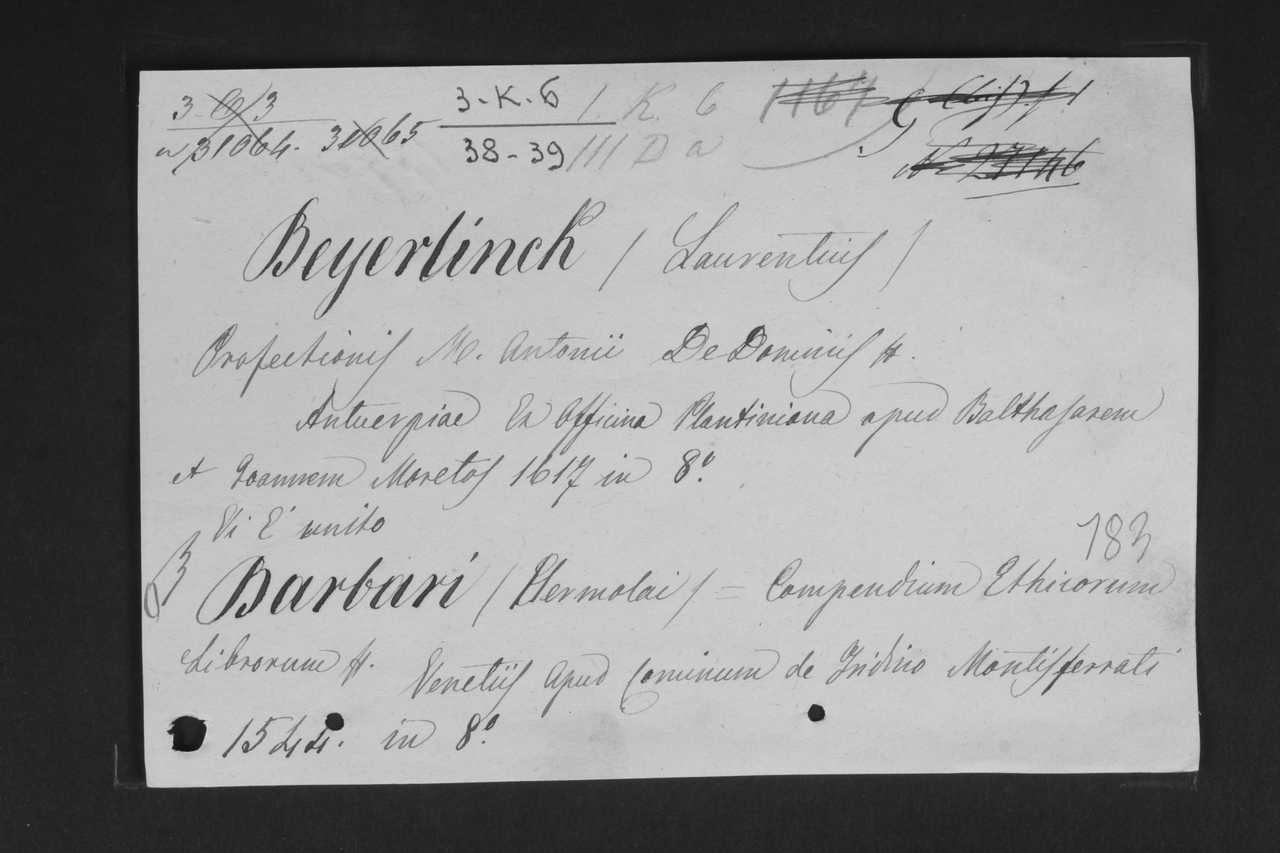 3-K-6 I. K. 6
n 31064. 31065 38-39 III D a
Beyerlinck (Laurentius)
Profectionis M. Antonii De Dominis #.
Antuerpiae Ex Officina Plantiniana apud Balthasarem
et Joannem Moretos 1617 in 8.º
Vi è unito
183
Barbari (Hermolai) = Compendium Ethicorum
Librorum #. Venetiis apud Cominum de Tridino Montisferrati
1544. in 8.º